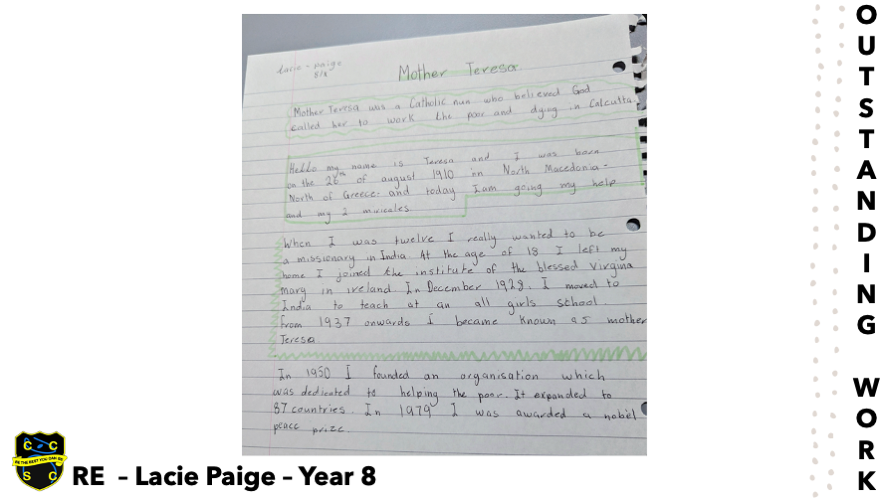 lacie - paige
8/8
Mother Teresa
Mother Teresa was a Catholic nun who believed God
called her to work the poor and dying in Calcutta.
Hello my name is Teresa and I was born
on the 26th of august 1910 in North Macedonia -
North of Greece - and today I am going my help
and my 2 miricales
When I was twelve I really wanted to be
a missionary in India. At the age of 18 I left my
home I joined the institute of the blessed virgina
mary in ireland. In December 1928. I moved to
India to teach at an all girls school.
From 1937 onwards I became known as mother
Teresa
In 1950 I founded an organisation which
was dedicated to helping the poor. It expanded to
87 countries. In 1979 I was awarded a nobel
peace prize.
C C
BE THE BEST YOU CAN BE
S C
RE – Lacie Paige – Year 8
OUTSTANDING WORK